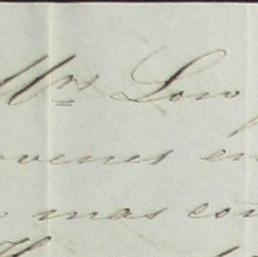 Mrs Low
ovenes en
mas con